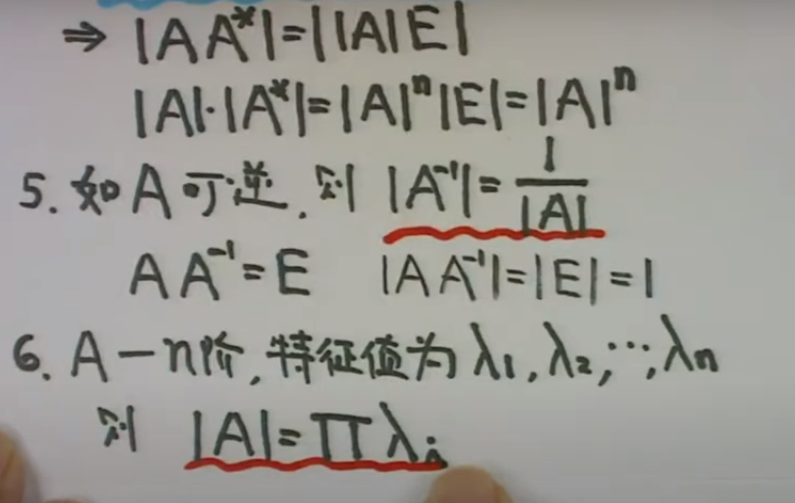 ⇒ |AA*|=||A|E|
|A|·|A*|=|A|ⁿ|E|=|A|ⁿ
5. 如A可逆, 则 |A⁻¹|=1/|A|
AA⁻¹=E |AA⁻¹|=|E|=1
6. A-n阶, 特征值为λ₁, λ₂, ⋯, λₙ
则 |A|=∏λᵢ